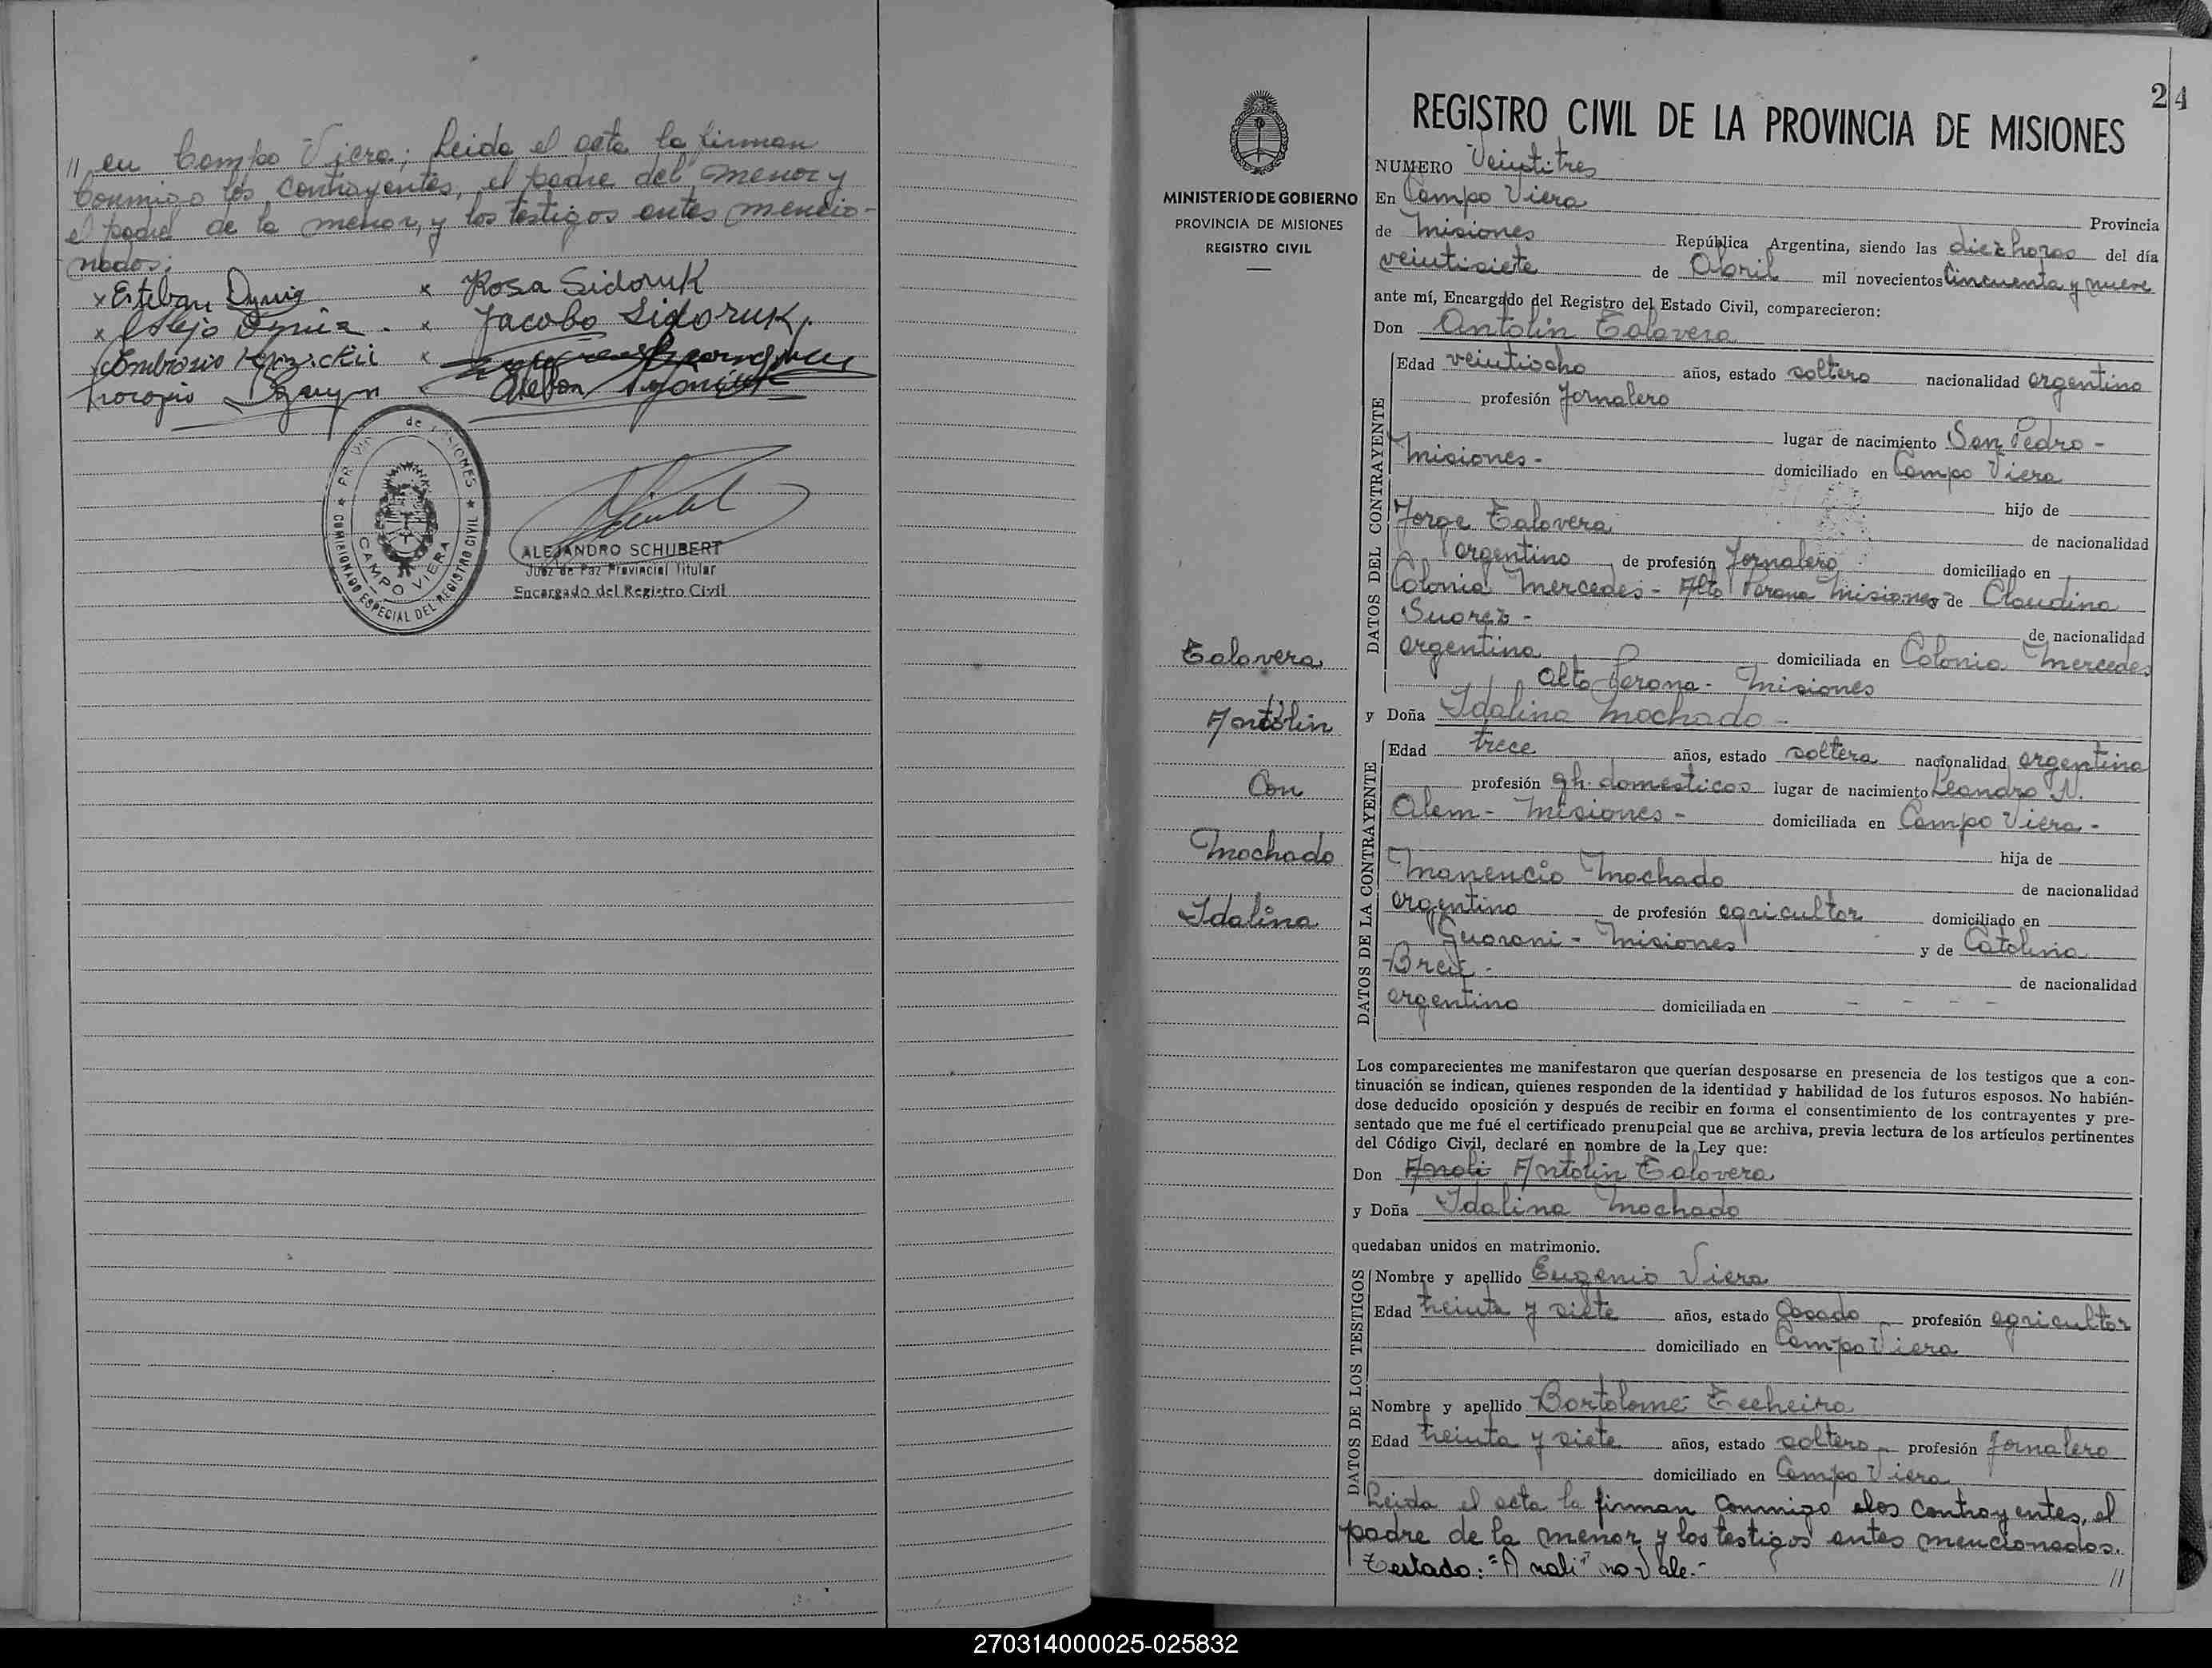 // en Campo Viera; Leida el acta la firman
Conmigo los contrayentes, el padre del menor y
el padre de la menor, y los testigos antes mencio-
nados;
x Esteban x Rosa Sidoruk
x Alejo x Jacobo Sidoruk
Ambrosio
Procopio
PROVINCIA de MISIONES
COMISIONADO ESPECIAL DEL REGISTRO CIVIL
CAMPO VIERA
ALEJANDRO SCHUBERT
Juez de Paz Provincial Titular
Encargado del Registro Civil
24
MINISTERIO DE GOBIERNO
PROVINCIA DE MISIONES
REGISTRO CIVIL
Talavera
Antolin
Con
Machado
Idalina
REGISTRO CIVIL DE LA PROVINCIA DE MISIONES
NUMERO Veintitres
En Campo Viera Provincia
de Misiones República Argentina, siendo las diez horas del día
veintisiete de Abril mil novecientos Cincuenta y nueve
ante mí, Encargado del Registro del Estado Civil, comparecieron:
Don Antolin Talavera
DATOS DEL CONTRAYENTE
Edad veintiocho años, estado soltero nacionalidad argentino
profesión Jornalero
lugar de nacimiento San Pedro -
Misiones - domiciliado en Campo Viera
hijo de
Jorge Talavera de nacionalidad
argentino de profesión Jornalero domiciliado en
Colonia Mercedes - Alto Parana Misiones y de Claudina
Suarez - de nacionalidad
argentina domiciliada en Colonia Mercedes
Alto Parana - Misiones
y Doña Idalina Machado -
DATOS DE LA CONTRAYENTE
Edad trece años, estado soltera nacionalidad argentina
profesión qh. domesticos lugar de nacimiento Leandro N.
Alem - Misiones - domiciliada en Campo Viera -
hija de
Manencio Machado de nacionalidad
argentino de profesión agricultor domiciliado en
Guarani - Misiones y de Catalina
de nacionalidad
argentina domiciliada en - - - -
Los comparecientes me manifestaron que querían desposarse en presencia de los testigos que a con-
tinuación se indican, quienes responden de la identidad y habilidad de los futuros esposos. No habién-
dose deducido oposición y después de recibir en forma el consentimiento de los contrayentes y pre-
sentado que me fué el certificado prenupcial que se archiva, previa lectura de los artículos pertinentes
del Código Civil, declaré en nombre de la Ley que:
Don Anali Antolin Talavera
y Doña Idalina Machado
quedaban unidos en matrimonio.
DATOS DE LOS TESTIGOS
Nombre y apellido Eugenio Viera
Edad treinta y siete años, estado Casado profesión agricultor
domiciliado en Campo Viera
Nombre y apellido Bartolome Techeira
Edad treinta y siete años, estado soltero profesión Jornalero
domiciliado en Campo Viera
Leida el acta la firman Conmigo los contrayentes, el
padre de la menor y los testigos antes mencionados.
Testado: "Anali" no Vale.- //
270314000025-025832